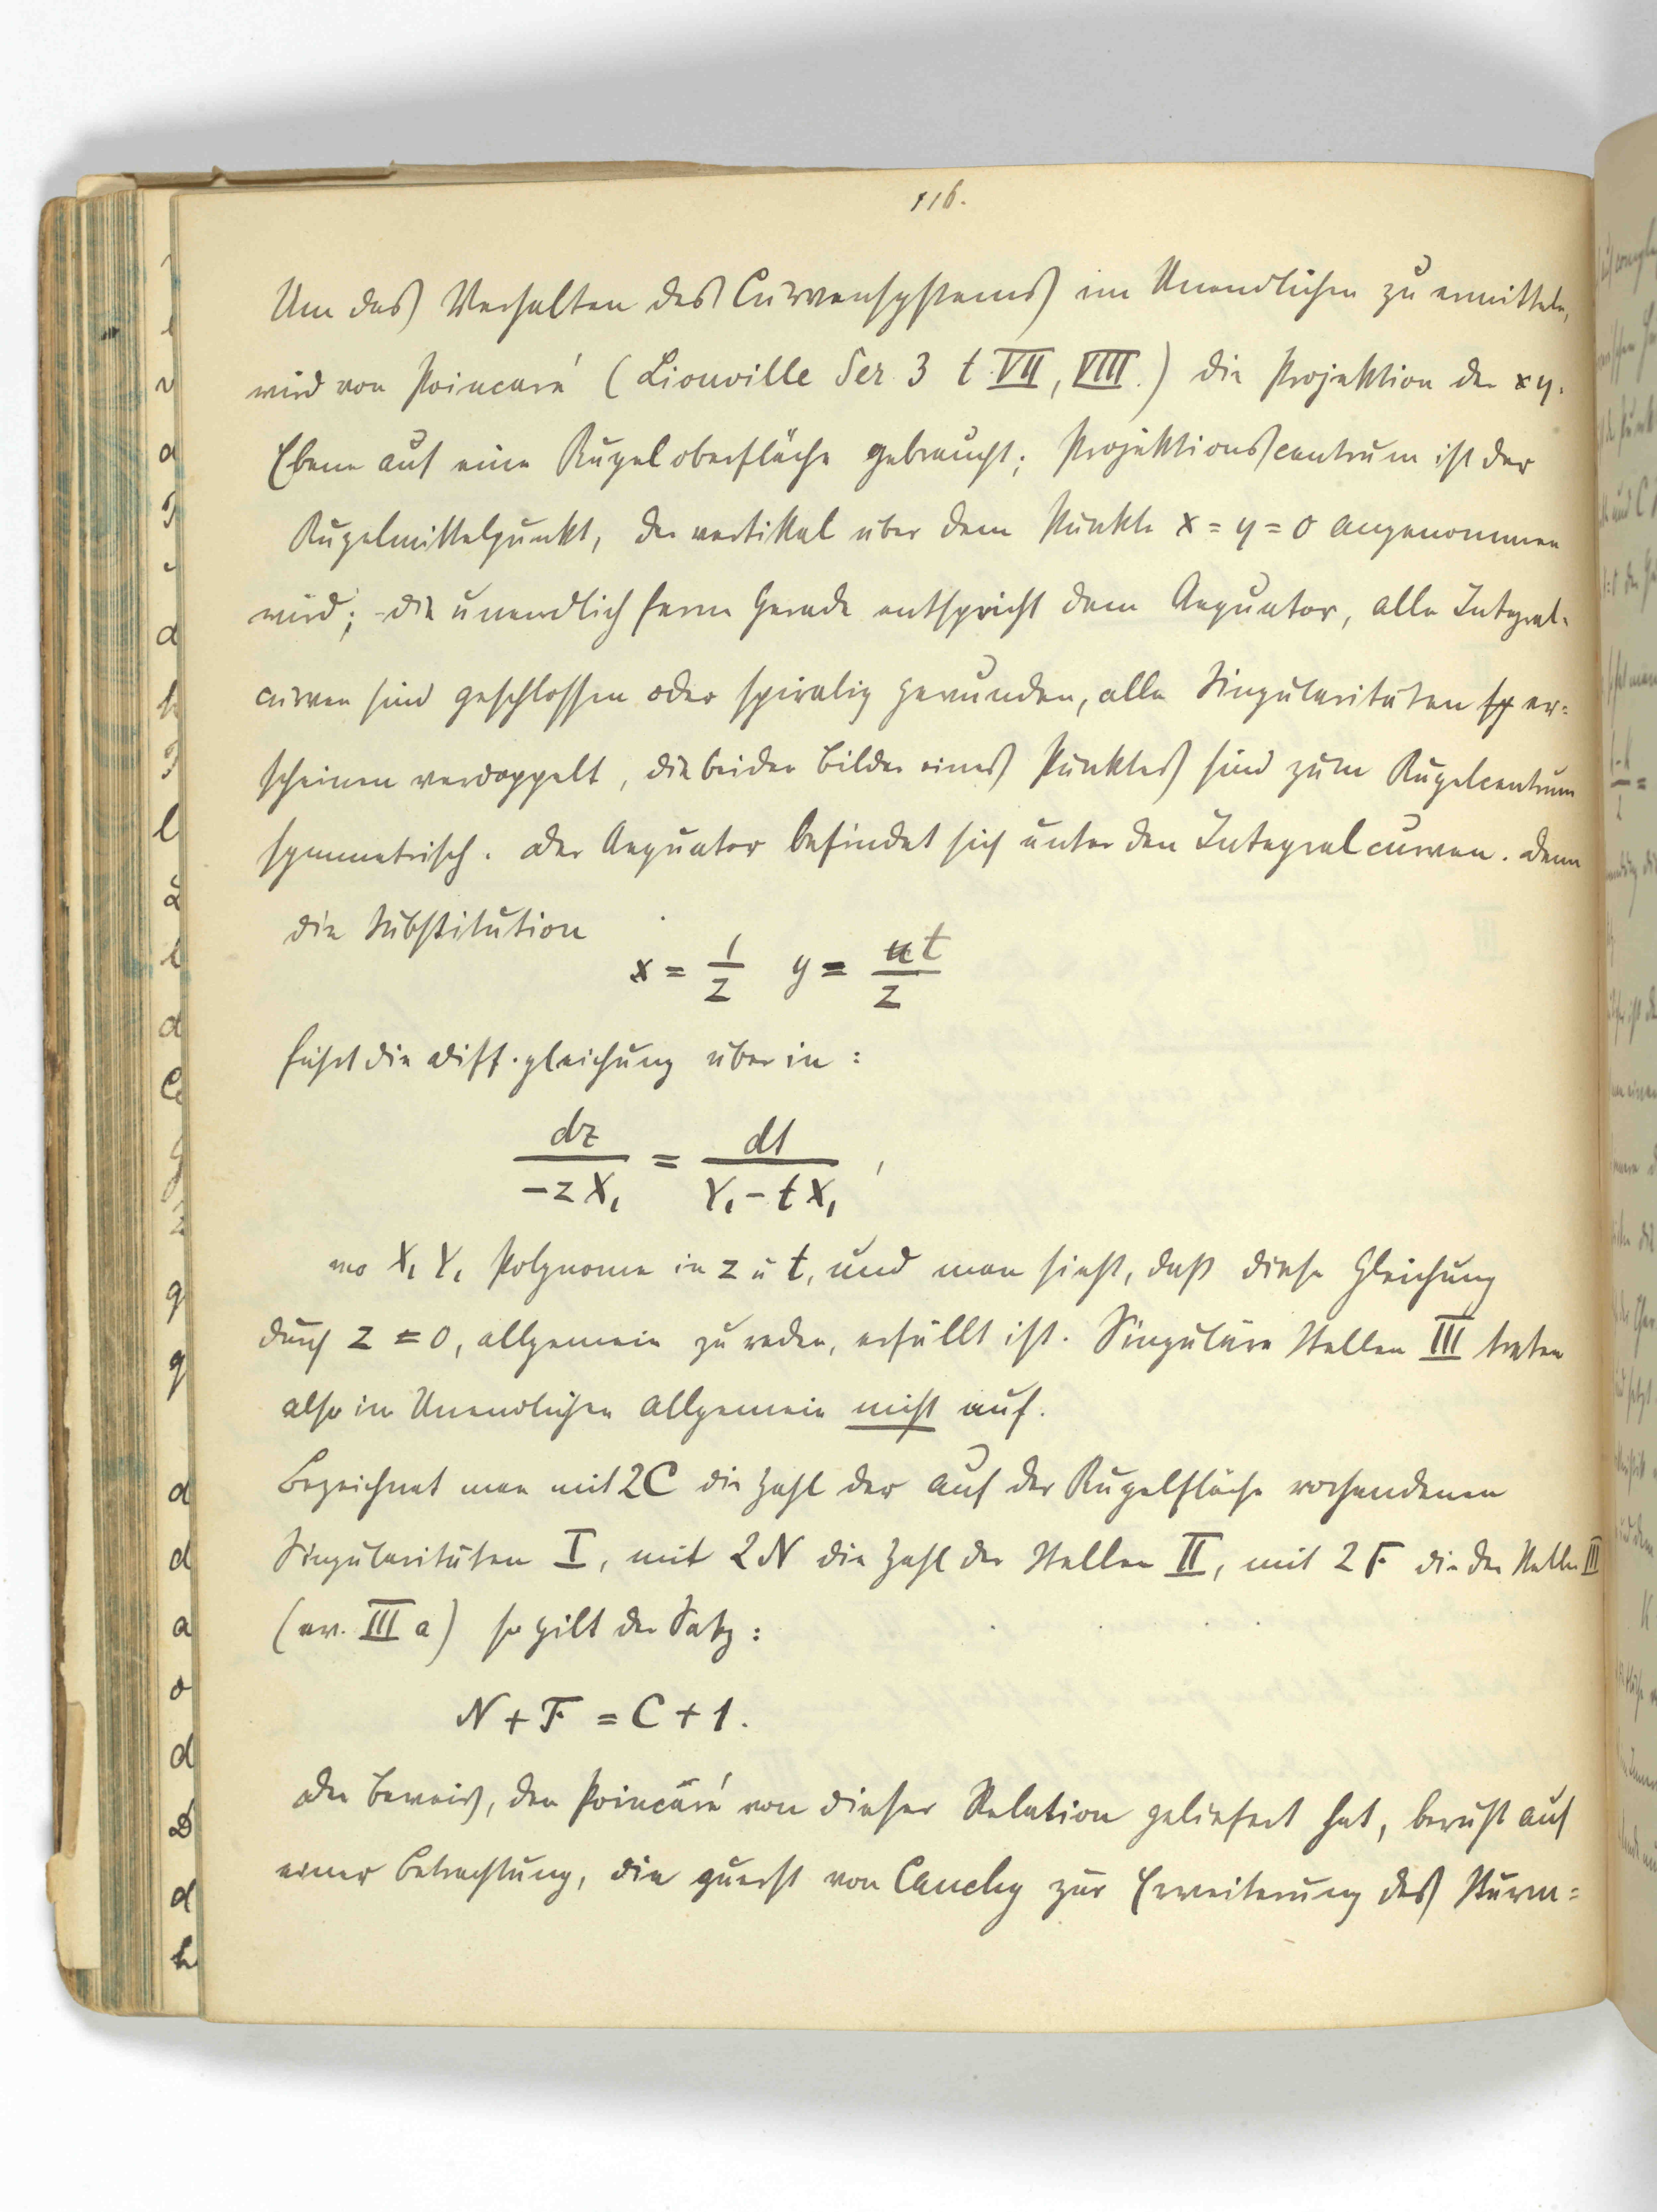 116.
Um das Verhalten des Curvensystems im Unendlichen zu ermitteln,
wird von Poincaré (Liouville Ser. 3 t. VII, VIII.) die Projektion der xy-
Ebene auf eine Kugeloberfläche gebraucht; Projektionscentrum ist der
Kugelmittelpunkt, der vertikal über dem Punkte x = y = 0 angenommen
wird; die unendlich ferne Gerade entspricht dem Aequator, alle Integral-
curven sind geschlossen oder spiralig gewunden, alle Singularitäten er=
scheinen verdoppelt, die beiden Bilder eines Punktes sind zum Kugelcentrum
symmetrisch. Der Aequator befindet sich unter den Integralcurven. Denn
die Substitution
x = 1/z y = t/z
führt die Diff.gleichung über in:
dz/(-zX₁) = dt/(Y₁ - tX₁),
wo X₁ Y₁ Polynome in z u t, und man sieht, daß diese Gleichung
durch z = 0, allgemein zu reden, erfüllt ist. Singuläre Stellen III treten
also im Unendlichen allgemein nicht auf.
Bezeichnet man mit 2C die Zahl der auf der Kugelfläche vorhandenen
Singularitäten I, mit 2N die Zahl der Stellen II, mit 2F die der Stellen III
(ev. III a) so gilt der Satz:
N + F = C + 1.
Der Beweis, den Poincaré von dieser Relation geliefert hat, beruht auf
einer Betrachtung, die zuerst von Cauchy zur Erweiterung des Sturm=